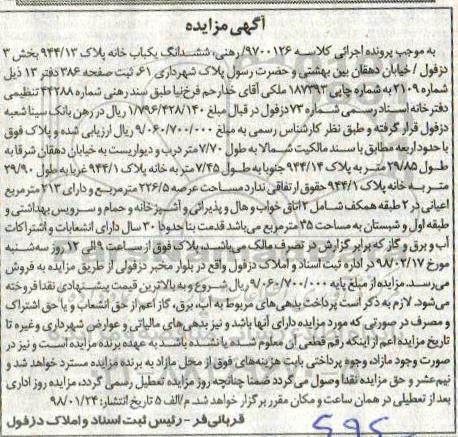 آگهی مزایده
به موجب پرونده اجرائی کلاسه ۹۷۰۰۱۲۶/رهنی، ششدانگ یکباب خانه پلاک ۹۴۴/۱۳ بخش ۳
دزفول / خیابان دهقان بین بهشتی و حضرت رسول پلاک شهرداری ۶۱، ثبت صفحه ۳۸۶ دفتر ۱۳ ذیل
شماره ۲۱۰۹ به شماره چاپی ۱۸۷۳۹۳ ملکی آقای خدارحم فرخ‌نیا طبق سند رهنی شماره ۴۴۲۸۸ تنظیمی
دفترخانه اسناد رسمی شماره ۷۳ دزفول در قبال مبلغ ۱/۷۹۶/۴۲۸/۱۴۰ ریال در رهن بانک سینا شعبه
دزفول قرار گرفته و طبق نظر کارشناس رسمی به مبلغ ۹/۰۶۰/۷۰۰/۰۰۰ ریال ارزیابی شده و پلاک فوق
با حدود اربعه مطابق با سند مالکیت شمالا به طول ۷/۷۰ متر درب و دیواریست به خیابان دهقان شرقا به
طول ۲۹/۸۵ متر به پلاک ۹۴۴/۱۴ جنوبا به طول ۷/۴۵ متر به خانه پلاک ۹۴۴/۱ غربا به طول ۲۹/۹۰
متر به خانه پلاک ۹۴۴/۱ حقوق ارتفاقی ندارد مساحت عرصه ۲۲۶/۵ مترمربع و دارای ۲۱۳ مترمربع
اعیانی در ۲ طبقه همکف شامل ۲ اتاق خواب و هال و پذیرائی و آشپزخانه و حمام و سرویس بهداشتی و
طبقه اول و شبستان به مساحت ۳۵ مترمربع می‌باشد قدمت بنا حدودا ۳۰ سال دارای انشعابات و اشتراکات
آب و برق و گاز که برابر گزارش در تصرف مالک می‌باشد. پلاک فوق از ساعت ۹ الی ۱۲ روز سه‌شنبه
مورخ ۹۸/۰۲/۱۷ در اداره ثبت اسناد و املاک دزفول واقع در بلوار مخبر دزفولی از طریق مزایده به فروش
می‌رسد. مزایده از مبلغ پایه ۹/۰۶۰/۷۰۰/۰۰۰ ریال شروع و به بالاترین قیمت پیشنهادی نقدا فروخته
می‌شود. لازم به ذکر است پرداخت بدهی‌های مربوط به آب، برق، گاز اعم از حق انشعاب و یا حق اشتراک
و مصرف در صورتی که مورد مزایده دارای آنها باشد و نیز بدهی‌های مالیاتی و عوارض شهرداری و غیره تا
تاریخ مزایده اعم از اینکه رقم قطعی آن معلوم شده یا نشده باشد به عهده برنده مزایده است و نیز در
صورت وجود مازاد، وجوه پرداختی بابت هزینه‌های فوق از محل مازاد به برنده مزایده مسترد خواهد شد و
نیم‌عشر و حق مزایده نقدا وصول می‌گردد ضمنا چنانچه روز مزایده تعطیل رسمی گردد، مزایده روز اداری
بعد از تعطیلی در همان ساعت و مکان مقرر برگزار خواهد شد. م/الف ۵ تاریخ انتشار: ۹۸/۰۱/۲۴
قربانی‌فر - رئیس ثبت اسناد و املاک دزفول